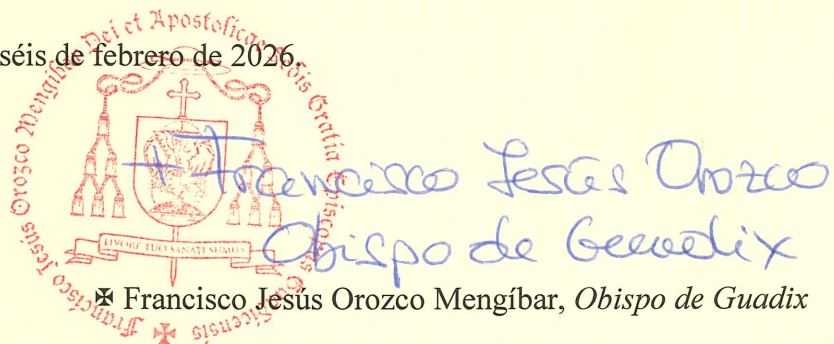 séis de febrero de 2026.
Francisco Jesús Orozco Mengíbar Dei et Apostolicae Sedis Gratia Episcopus Guadicensis ✠
LIVORE TUO SANATI SUMUS
+ Francisco Jesús Orozco
Obispo de Guadix
✠ Francisco Jesús Orozco Mengíbar, Obispo de Guadix